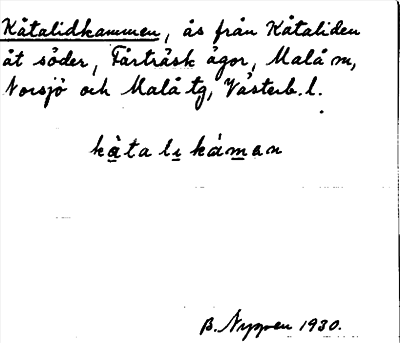 Kåtalidkammen, ås från Kåtaliden
åt söder, Fårträsk ägor, Malå m,
Norsjö och Malå tg, Västerb. l.
kàtalikámen
B. Nyssen 1930.